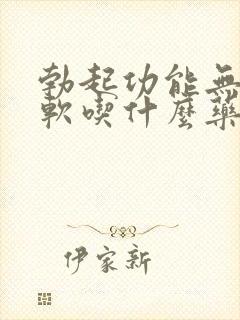 勃起功能無
軟喫什麼藥
伊家新